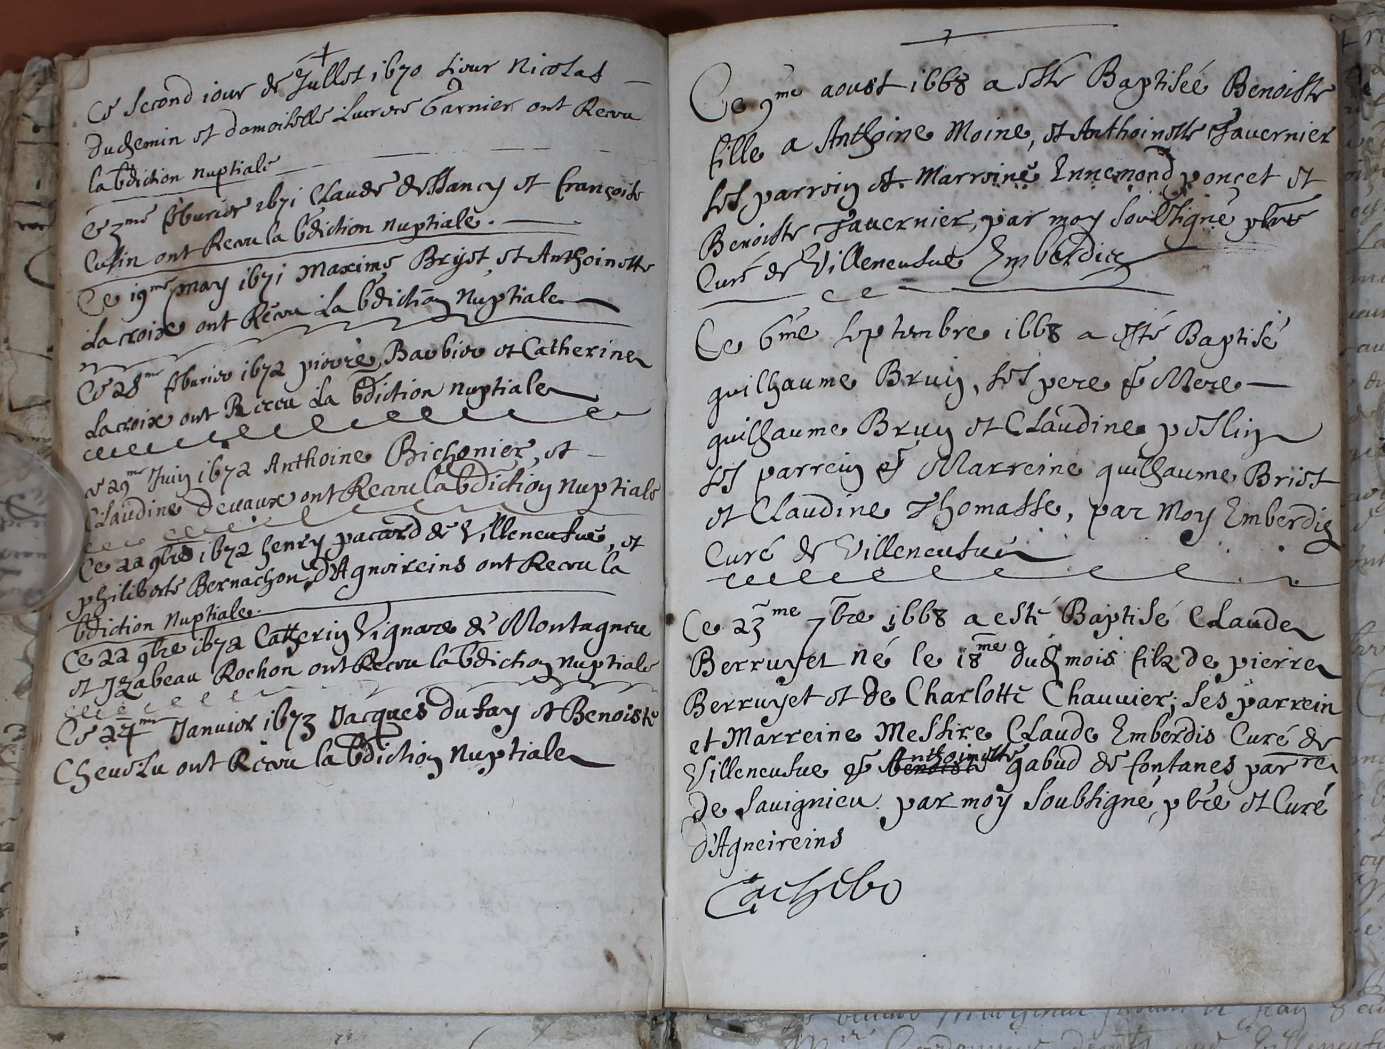 Ce second iour de Juillet 1670 sieur Nicolas
duchemin et damoiselle Lucrece Garnier ont Receu
la bdiction nuptiale
Ce 3me feburier 1671 Claude et françoise
Cusin ont Receu la bdiction nuptiale.
Ce 19me may 1671 Maxime Bryet, et Anthoinette
Lacroix ont Receu La bdiction Nuptiale
Ce 28me feburier 1672 pierre Barbier et Catherine
Lacroix ont Receu La bdiction nuptiale
Ce 29me Juin 1672 Anthoine Bichonier, et
Claudine Devaux ont Receu la bdiction Nuptiale
Ce 22 9bre 1672 henry pacard de Villeneufue, et
philiberte Bernachon, d'Agnoireins ont Receu la
bdiction Nuptiale.
Ce 22 9bre 1672 Catherin Vignare de Montagneu
et Izabeau Rochon ont Receu la bdiction Nuptiale
Ce 24me Januier 1673 Jacques dufay et Benoiste
Cheuelu ont Receu la bdiction Nuptiale
Ce 9me aoust 1668 a esté Baptisée Benoiste
fille a Anthoine Moine, et Anthoinette Tauernier
ses parrein et Marreine Ennemond poncet et
Benoiste Tauernier, par moy soubsigné pbre
Curé de Villeneufue Emberdis
Ce 6me septembre 1668 a esté Baptisé
guilhaume Bruy, ses pere & Mere
guilhaume Bruy et Claudine poslin
ses parrein & Marreine guilhaume Briet
et Claudine Thomasse, par Moy Emberdis
Curé de Villeneufue
Ce 23me 7bre 1668 a esté Baptisé Claude
Berruyet né le 18me dud mois filz de pierre
Berruyet et de Charlotte Chauuier; ses parrein
et Marreine Messire Claude Emberdis Curé de
Villeneufue & Anthoinette gabud de fontanes parre
de Sauignieu. par moy soubsigné, pbre et Curé
d'Agneireins
Cachebo